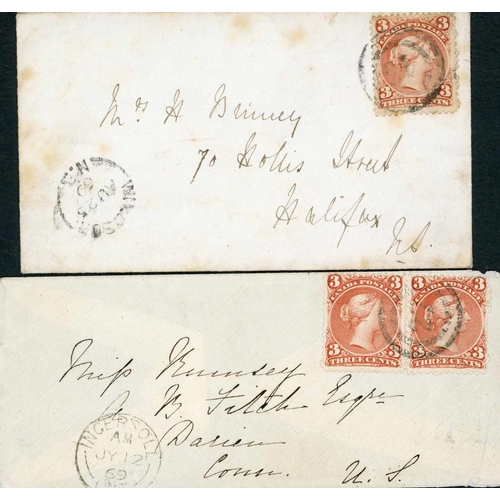 3 CANADA POSTAGE 3
3 THREE CENTS 3
Mrs H Binney
70 Hollis Street
Halifax
NS.
WINDSOR
AU 25
69
N.S
3 CANADA POSTAGE 3
3 THREE CENTS 3
3 CANADA POSTAGE 3
3 THREE CENTS 3
Miss Rumsey
B. Fitch Esqre
Darien
Conn. U. S.
INGERSOLL
AM
JY 12
69